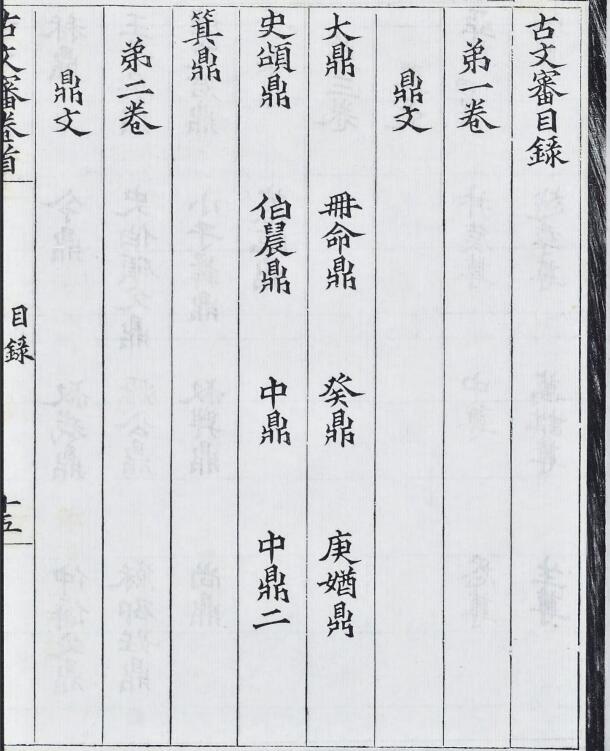 古文審目録
弟一卷
鼎文
大鼎 冊命鼎 癸鼎 庚婨鼎
史頌鼎 伯晨鼎 中鼎 中鼎二
箕鼎
弟二卷
鼎文
古文審卷首 目録 十五